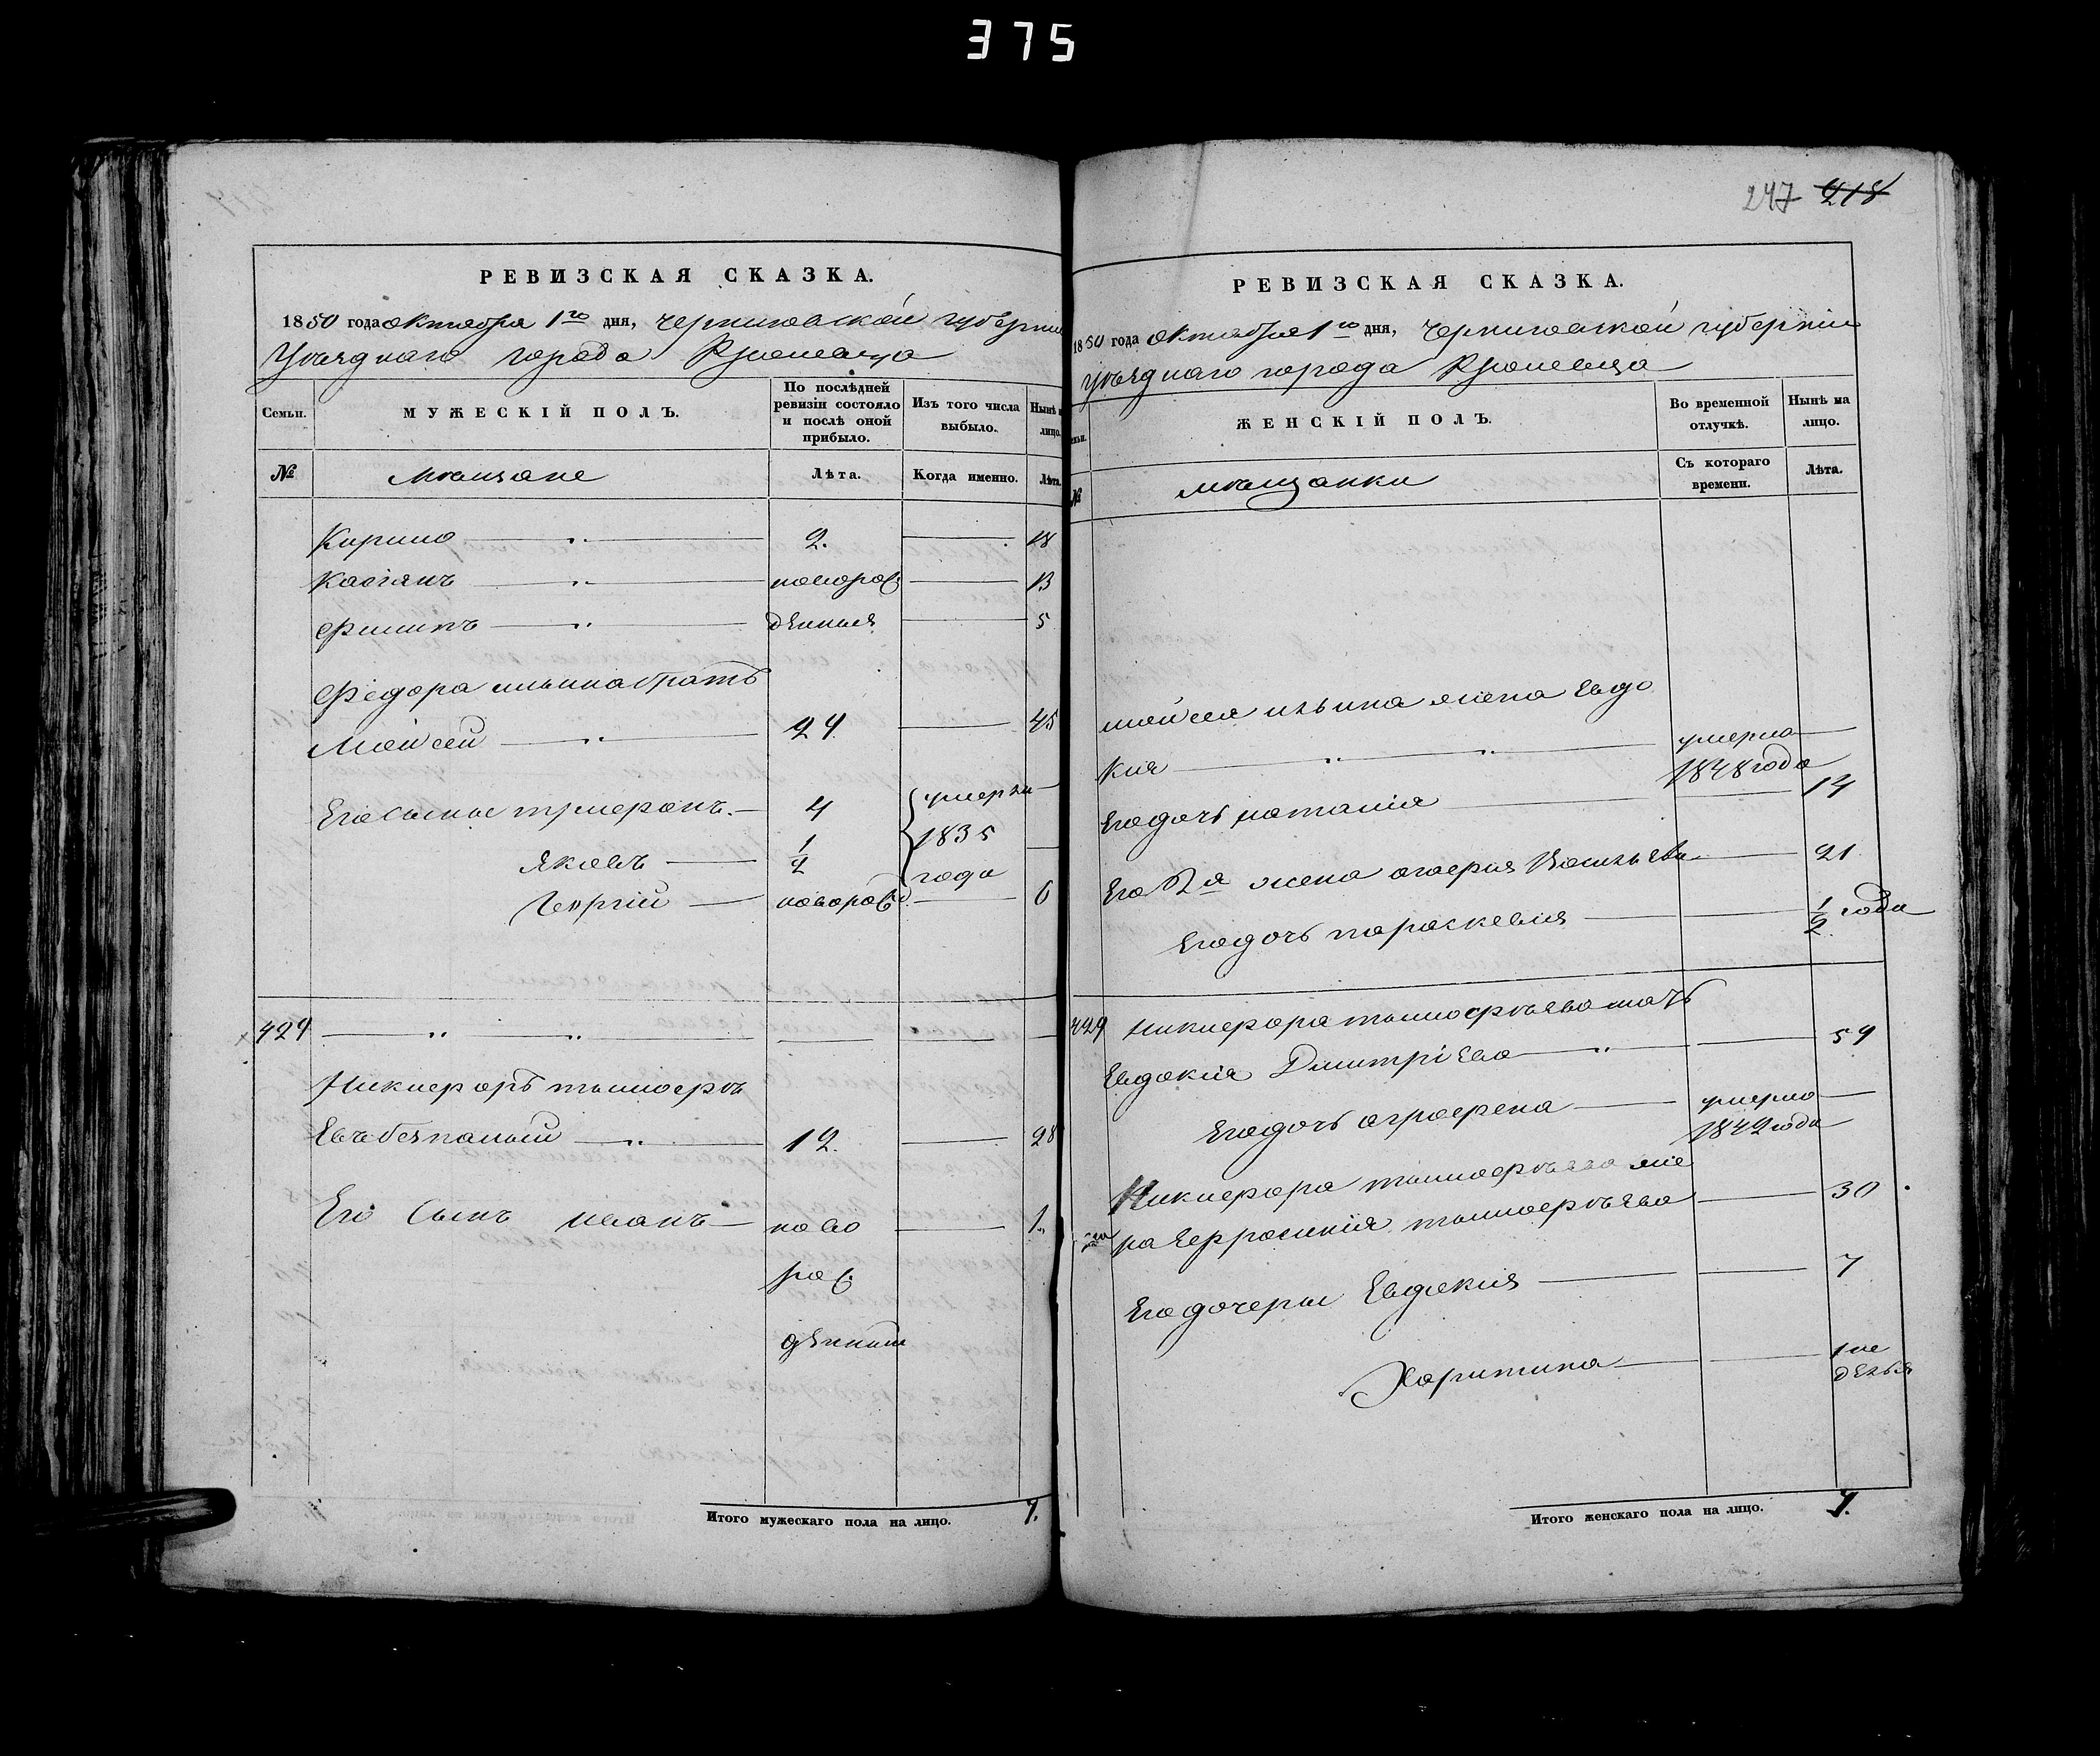 375
РЕВИЗСКАЯ СКАЗКА.
1850 года октября 1го дня, Черниговской губерніи
уѣзднаго города Кролевца
Семьи.
МУЖЕСКІЙ ПОЛЪ.
По послѣдней ревизіи состояло и послѣ оной прибыло.
Изъ того числа выбыло.
Нынѣ на лицо.
№
мѣщане
Лѣта.
Когда именно.
Лѣта.
Кирило 2. 18
Касіянъ новорож 13
Филипъ денныя 5
Федора ильина братъ
Мойсей 24 45
Его сыновья 4 умерли
Яковъ 1/2 1835
года
Георгій новорожд 6
429
Никифоръ тимофѣ
евъ 12. 28
Его сынъ иванъ ново 1.
рож
денный
Итого мужескаго пола на лицо. 7.
247 218
РЕВИЗСКАЯ СКАЗКА.
1850 года октября 1го дня, Черниговской губерніи
уѣзднаго города Кролевца
ЖЕНСКІЙ ПОЛЪ.
Во временной отлучкѣ.
Нынѣ на лицо.
№
мѣщанки
Съ котораго времени.
Лѣта.
мойсея ильина жена Евдо
кия умерла
1848 года
Его дочь наталія 14
Его 2я жена Васильева 21
Его дочь параскевия 1/2 года
429 Никифора тимофѣева мать
Евдокия Дмитріева 59
Его дочь аграфена умерла
1842 года
Никифора тимофѣева же
на Ефросинія тимофѣева 30
Его дочери Евдокия 7
Харитина 1 не
делья
Итого женскаго пола на лицо. 7.